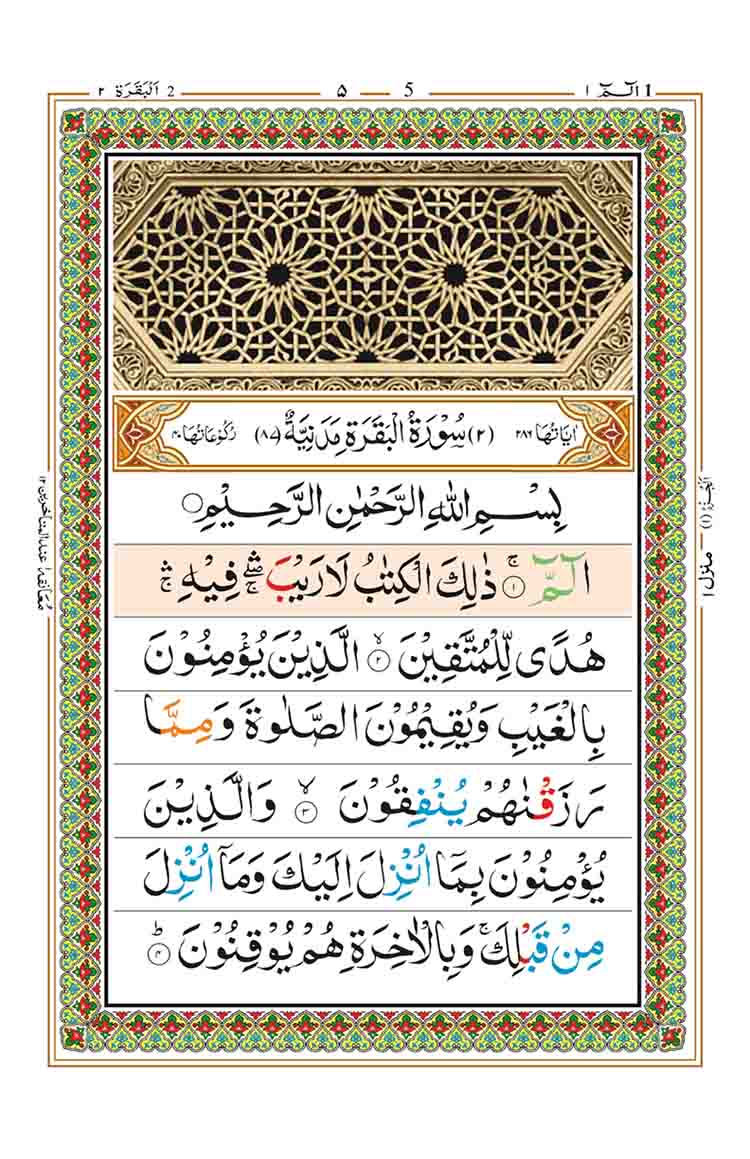 1 الٓـمّٓ ١ 5 — ۵ 2 اَلْبَقَرَة ٢
اٰيَاتُهَا ٢٨٦ (٢) سُوْرَةُ الْبَقَرَةِ مَدَنِيَّةٌ (٨٧) رُكُوْعَاتُهَا ٤٠
بِسْمِ اللّٰهِ الرَّحْمٰنِ الرَّحِيْمِ
الٓمّٓ ۚ ﴿١﴾ ذٰلِكَ الْكِتٰبُ لَا رَيْبَ ۛۖۚ فِيْهِ ۛۚ
هُدًى لِّلْمُتَّقِيْنَ ۙ﴿٢﴾ الَّذِيْنَ يُؤْمِنُوْنَ
بِالْغَيْبِ وَيُقِيْمُوْنَ الصَّلٰوةَ وَمِمَّا
رَزَقْنٰهُمْ يُنْفِقُوْنَ ۙ﴿٣﴾ وَالَّذِيْنَ
يُؤْمِنُوْنَ بِمَآ اُنْزِلَ اِلَيْكَ وَمَآ اُنْزِلَ
مِنْ قَبْلِكَ ۚ وَبِالْاٰخِرَةِ هُمْ يُوْقِنُوْنَ ؕ﴿٤﴾
اَلْجُزْءُ (١) — منزل ١
معانقه ١ عند المتأخرين ١٢